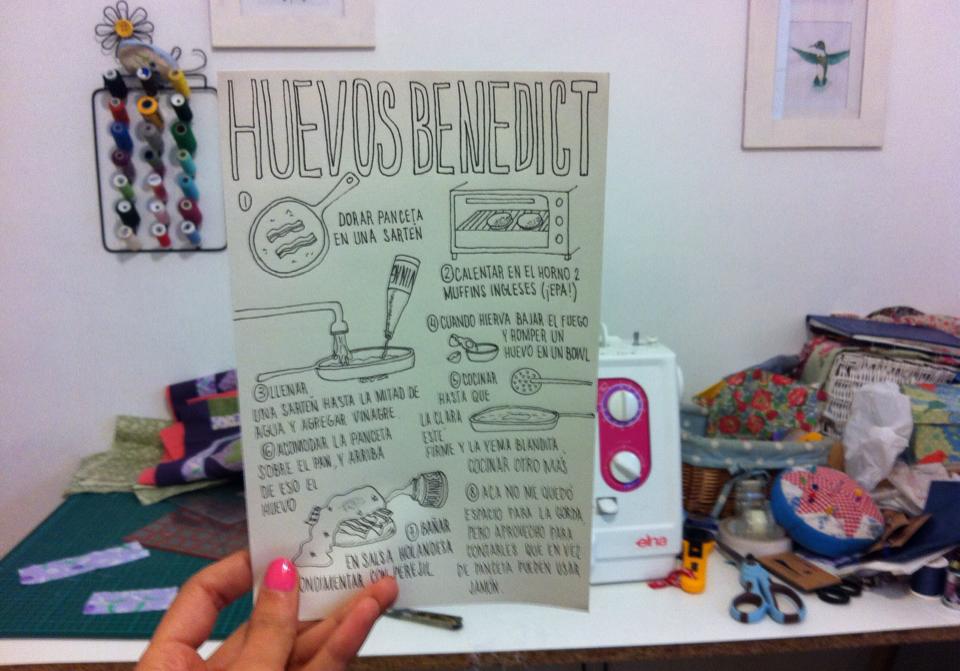 HUEVOS BENEDICT
① DORAR PANCETA
EN UNA SARTÉN
② CALENTAR EN EL HORNO 2
MUFFINS INGLESES (¡EPA!)
③ LLENAR
UNA SARTÉN HASTA LA MITAD DE
AGUA Y AGREGAR VINAGRE
④ CUANDO HIERVA BAJAR EL FUEGO
Y ROMPER UN
HUEVO EN UN BOWL
⑤ COCINAR
HASTA QUE
LA CLARA
ESTÉ
FIRME Y LA YEMA BLANDITA.
COCINAR OTRO MÁS
⑥ ACOMODAR LA PANCETA
SOBRE EL PAN, Y ARRIBA
DE ESO EL
HUEVO
⑦ BAÑAR
EN SALSA HOLANDESA
CONDIMENTAR CON PEREJIL
⑧ ACA NO ME QUEDÓ
ESPACIO PARA LA GORDA,
PERO APROVECHO PARA
CONTARLES QUE EN VEZ
DE PANCETA PUEDEN USAR
JAMÓN.
elna